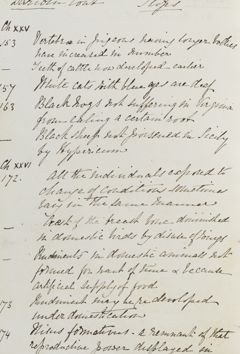 Ch XXV
153 Vertebræ in pigeons having longer bodies
have increased in number
Teeth of cattle now developed earlier
157 White cats with blue eyes are deaf
163 Black hogs not suffering in Virginia
from eating a certain root
Black sheep not poisoned in Sicily
by Hypericum
Ch XXVI
172. All the individuals exposed to
change of conditions sometimes
vary in the same manner
of the breast bone diminished
in domestic birds by disuse of wings
Rudiments in domestic animals not
formed for want of time & because
artificial supply of food
173 Rudiment may be redeveloped
under domestication
174 Nisus formativus - a remnant of that
reproductive power displayed in